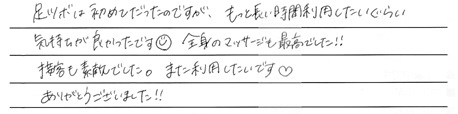 足ツボは初めてだったのですが、もっと長い時間利用したいぐらい
気持ちが良かったです☺ 全身のマッサージも最高でした!!
接客も素敵でした。また利用したいです♡
ありがとうございました!!